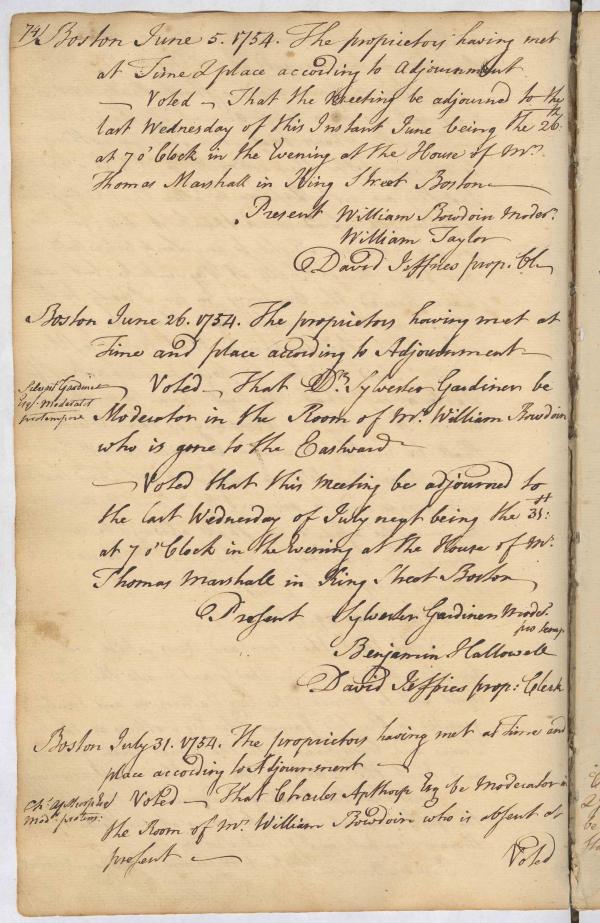 74/ Boston June 5. 1754. The proprietors having met
at Time & place according to Adjournment
— Voted — That the Meeting be adjourned to the
last Wednesday of this Instant June being the 26th.
at 7 o'Clock in the Evening at the House of Mr.
Thomas Marshall in King Street Boston —
Present William Bowdoin Moder.
William Taylor
David Jeffries prop. Cl
Boston June 26. 1754. The proprietors having met at
Time and place according to Adjournment —
Silvestr Gardiner
Esqr. Moderator
protempore
— Voted — That Dr. Sylvester Gardiner be
Moderator in the Room of Mr. William Bowdoin
who is gone to the Eastward —
— Voted that this Meeting be adjourned to
the last Wednesday of July next being the 31st:
at 7 o'Clock in the Evening at the House of Mr.
Thomas Marshall in King Street Boston
Present Sylvester Gardiner Moder
pro temp
Benjamin Hallowell
David Jeffries prop: Clerk
Boston July 31. 1754. The proprietors having met at Time and
place according to Adjournment —
Chs. Apthorp Esq
Modr. protem:
Voted — That Charles Apthorp Esq be Moderator in
the Room of Mr. William Bowdoin who is absent at
present —
Voted